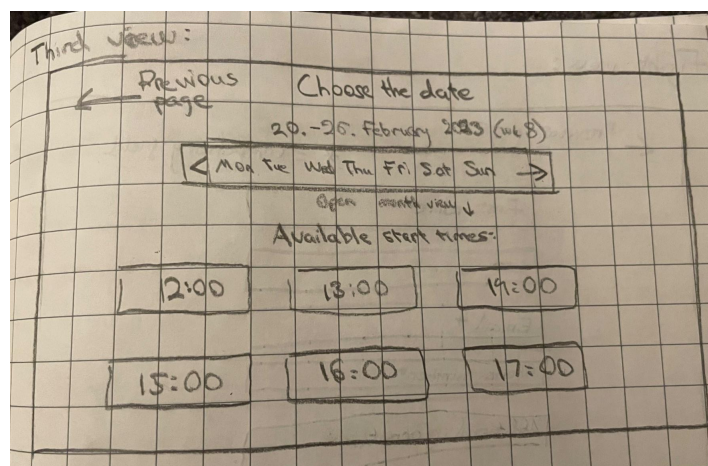 Third view:
← Previous page
Choose the date
20.-26. February 2023 (wk 8)
< Mon Tue Wed Thu Fri Sat Sun →
Open month view ↓
Available start times:
12:00 13:00 14:00
15:00 16:00 17:00